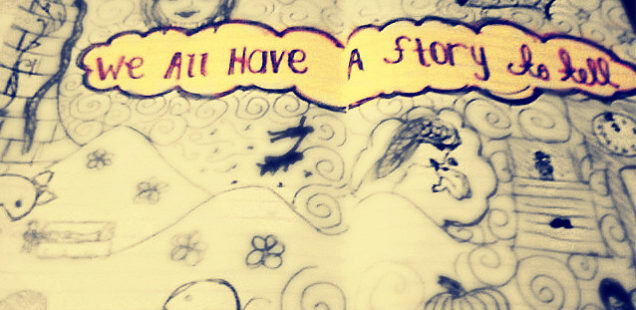 We All Have A Story to tell